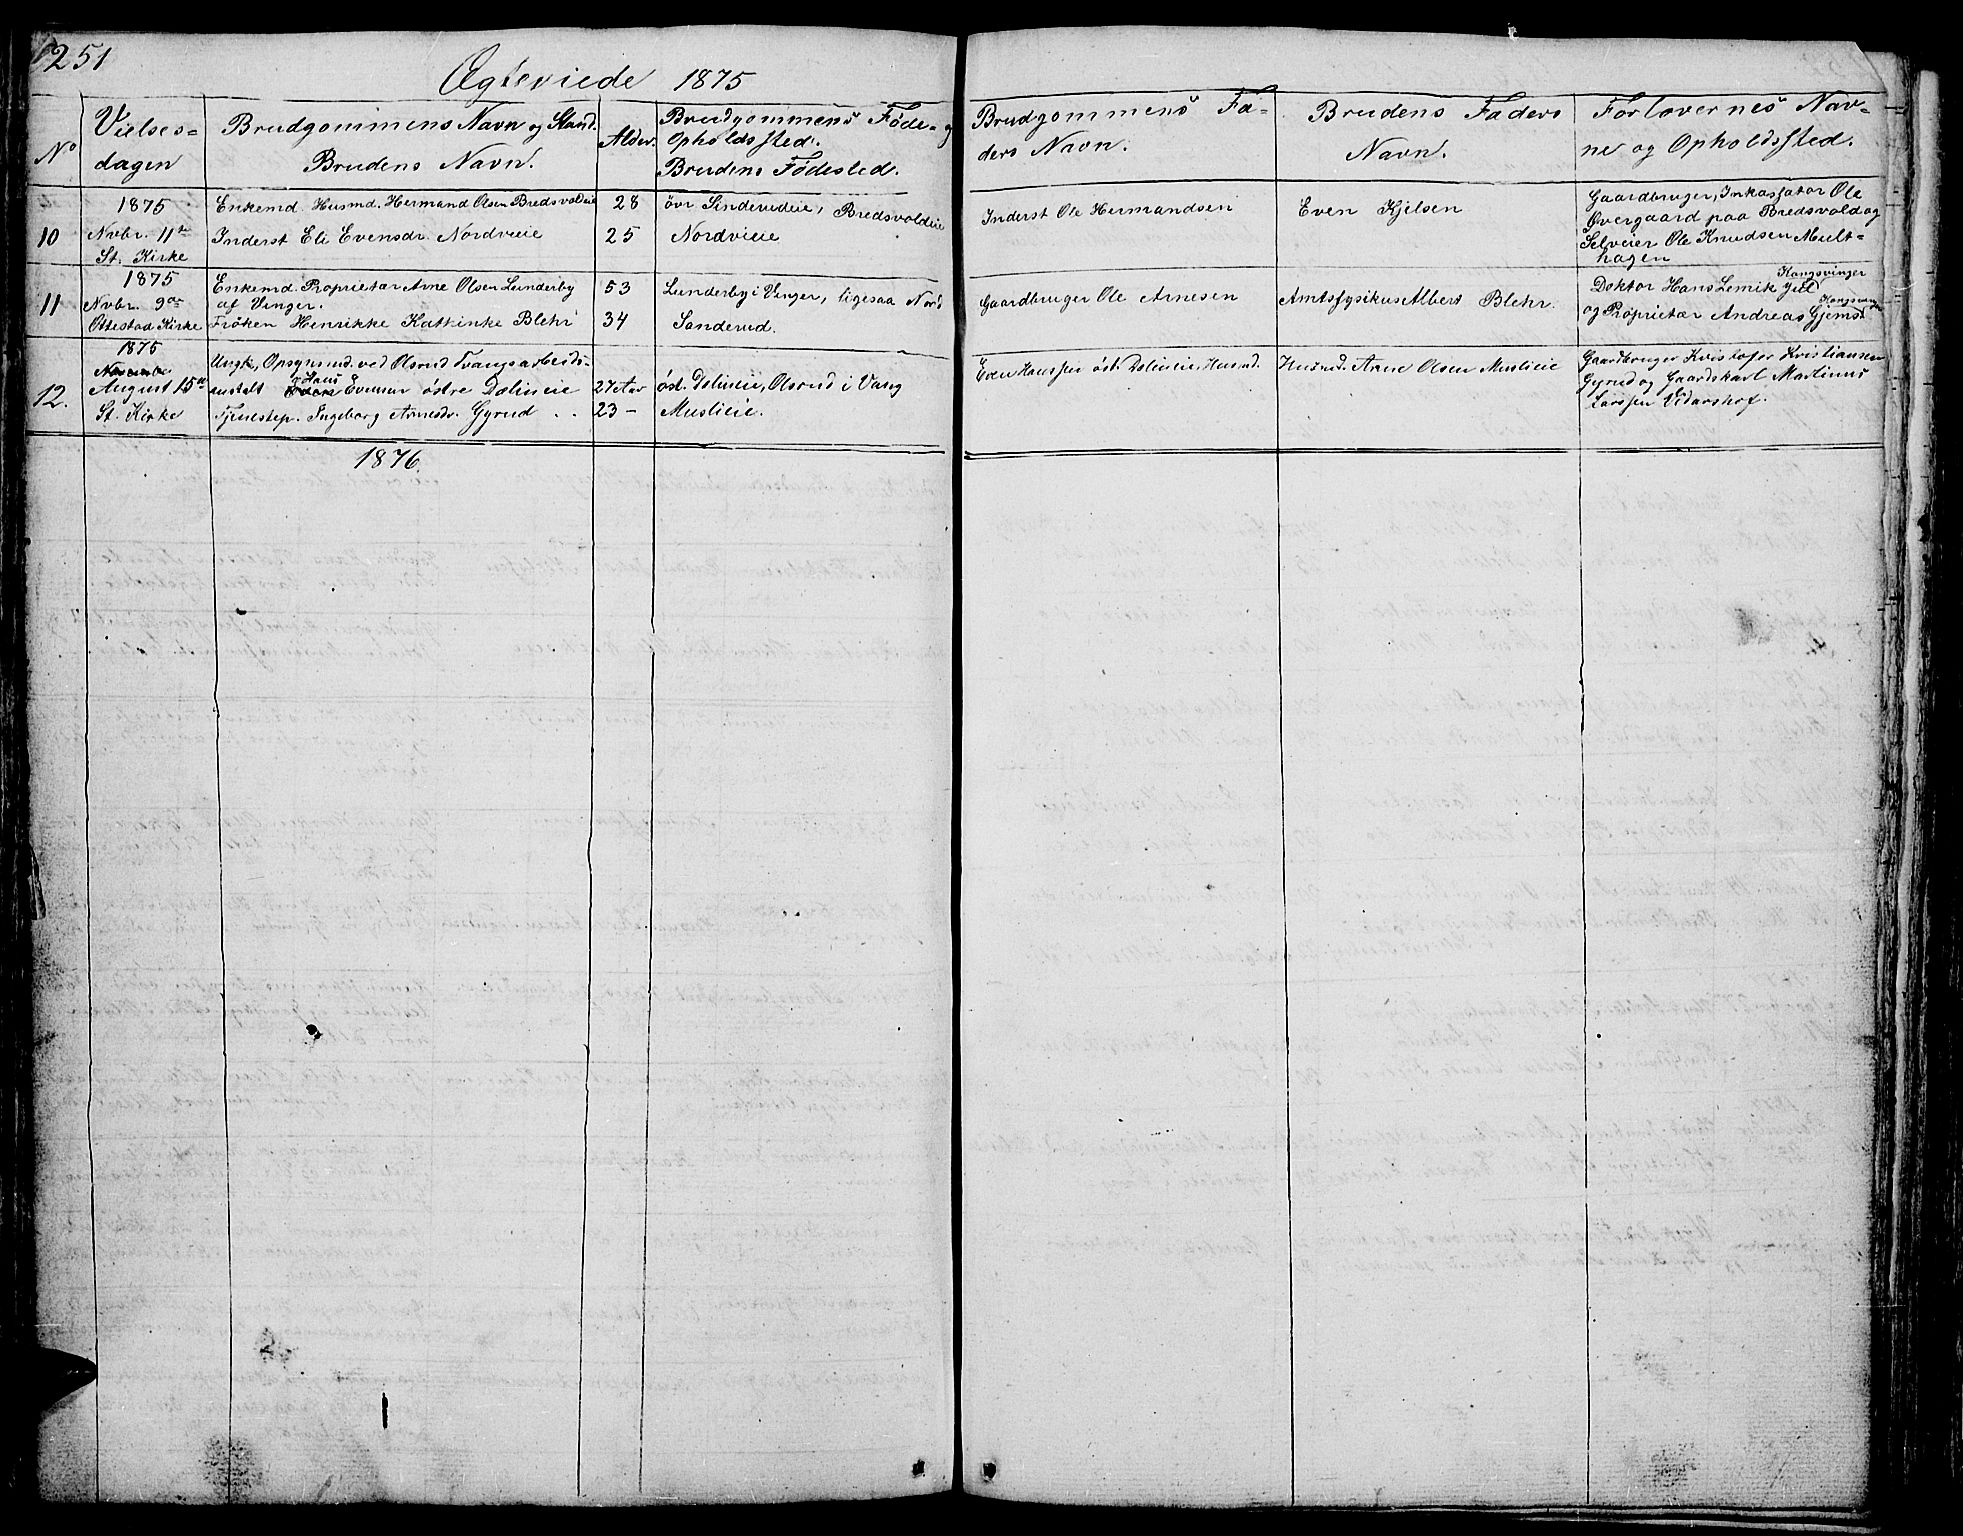 251
Ægteviede 1875
No
Vielses-
dagen
Brudgommens Navn og Stand.
Brudens Navn.
Alder.
Brudgommens Føde- og
Opholdssted.
Brudens Fødested.
Brudgommens Fa-
ders Navn.
Brudens Faders
Navn.
Forlovernes Nav-
ne og Opholdssted.
10
1875
Nvbr. 11te
St. Kirke
Enkemd. Husmd. Hermand Olsen Bredsvoldeie
Inderst Eli Evensdr. Nordvieie
28
25
øvr Sinderudeie, Bredsvoldeie
Nordvieie
Inderst Ole Hermandsen
Even Kjelsen
Gaardbruger, Inkassator Ole
Øvergaard paa Bredsvold og
Selveier Ole Knudsen Mult-
hagen
11
1875
Nvbr. 9de
Ottestad Kirke
Enkemd. Proprietær Arne Olsen Lunderby
af Vinger.
Frøken Henrikke Kathinke Blehr
53
34
Lunderby i Vinger, ligesaa
Sanderud.
Gaardbruger Ole Arnesen
Amtsfysikus Albert Blehr.
Kongsvinger
Doktor Hans Lemik Juel
og Proprietær Andreas Gjems
12.
1875
August 15de
St. Kirke
Ungk., Opsynsmd. ved Olsrud Tvangsarbeids-
anstalt Hans Evensen østre Dolineie
Tjenestep. Ingeborg Arnesdr. Gyrud . .
27 Aar
23 —
øst. Dolineie, Olsrud i Vang
Muslieie.
Even Hanssen øst. Dolineie, Husmd.
Husmd. Arne Olsen Muslieie
Gaardbruger Kristofer Kristiansen
Gyrud og Gaardskarl Martinus
Larssen Vidarshof.
1876.